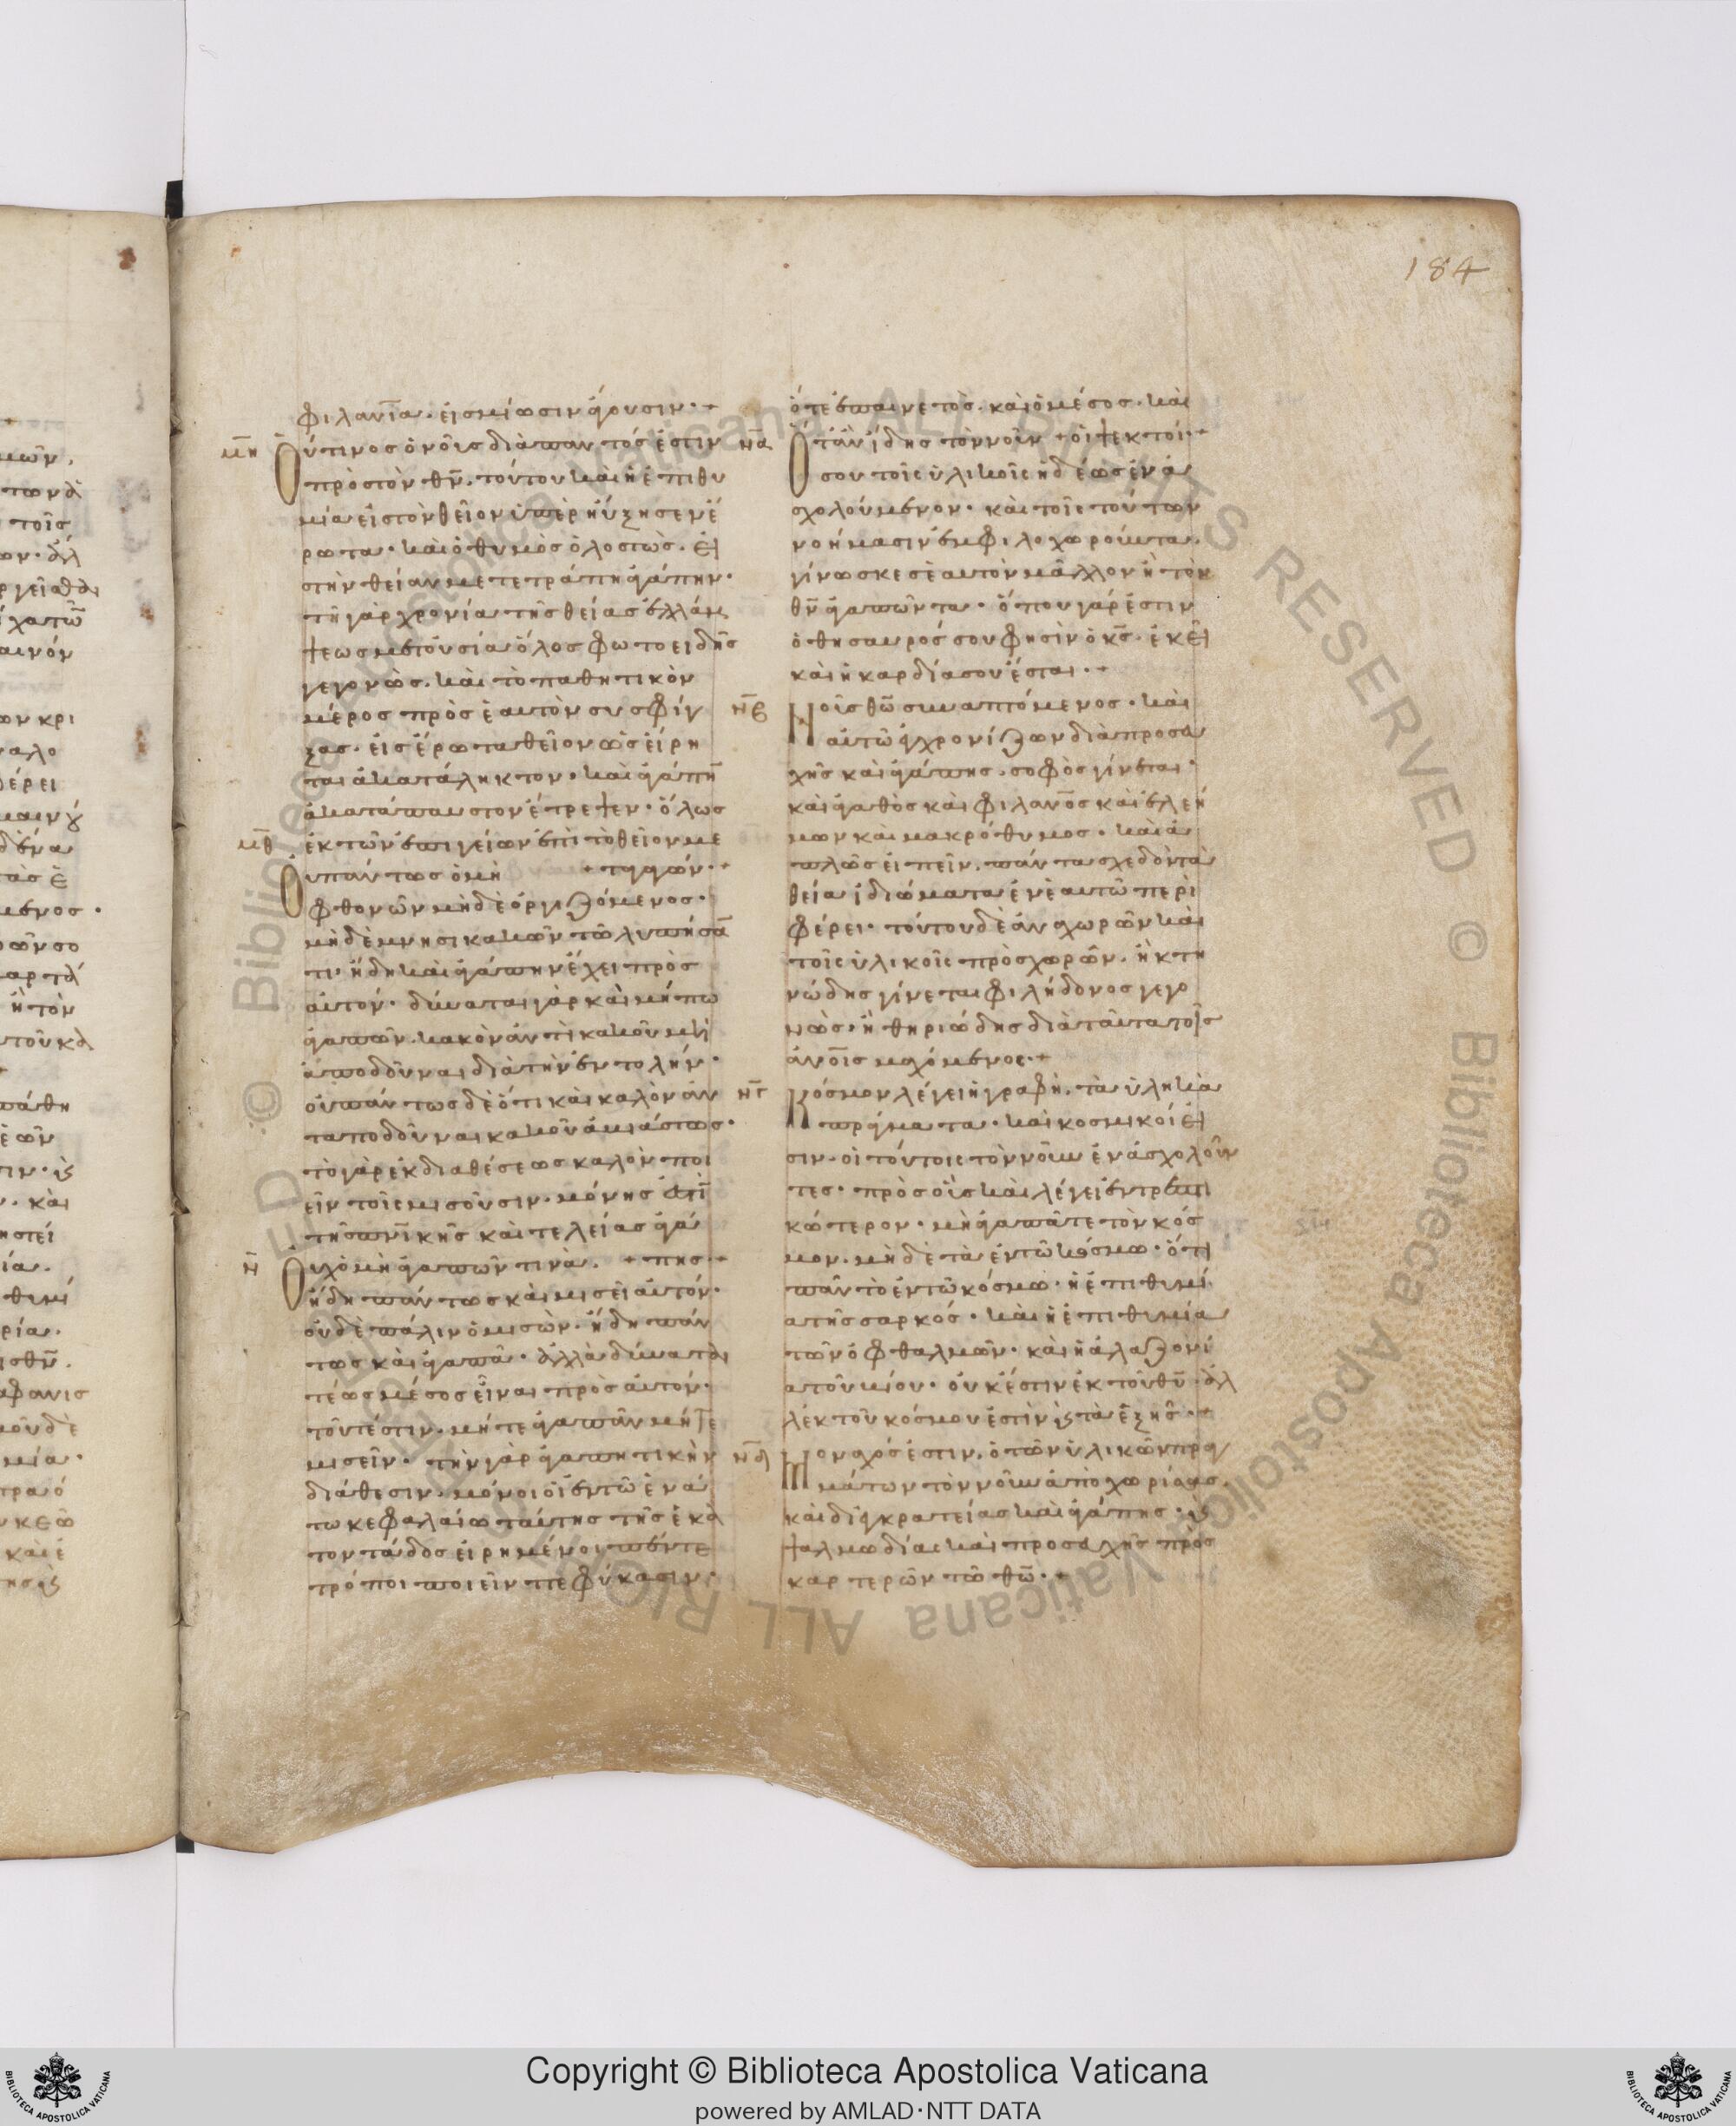 184
φιλανίαν. εἰσμίωσιν ἄγουσιν·
μη Οὗτινος ὁνοῦς διὰπαντός ἐστιν
πρὸς τὸν θν. τούτου καὶ ἡ ἐπιθυ
μία εἰς τὸν θεῖον ὑπερηύξησεν ἔ
ρωτα. καὶ ὁ θυμὸς ὁλοστῶς. εἰ
στὴν θείαν μετετράπη ἀγάπην·
τῆ γὰρ χρονία τῆς θείας ἐλλάμ
ψεως μετουσία ὅλος φωτοειδὴς
γεγονὼς. καὶ τὸ παθητικὸν
μέρος πρὸς ἑαυτὸν συσφίγ
ξας. εἰς ἔρωτα θεῖον ὡς εἴρη
ται ἀκατάληκτον. καὶ ἀγάπη
ἀκατάπαυστον ἔτρεψεν· ὅλως
μθ ἐκ τῶν ἐπιγείων ἐπὶ τὸ θεῖον με
Οὐ πάντως ὁ μὴ + ταγαγών· +
φθονῶν μηδὲ ὀργιζόμενος·
μηδὲ μνησικακῶν τῶ λυπήσα
τι· ἤδη καὶ ἀγάπην ἔχει πρὸς
αὐτόν· δύναται γὰρ καὶ μήπω
ἀγαπῶν. κακὸν ἀντὶ κακοῦ μὴ
ἀποδοῦναι διὰ τὴν ἐντολήν·
οὐ πάντως δὲ ὅτι καὶ καλὸν ἀν
ταποδοῦναι κακοῦ ἀμιάστως·
τὸ γὰρ ἐκ διαθέσεως καλὸν ποι
εῖν τοῖς μισοῦσιν. μόνης ἐστὶ
τῆς πνικῆς καὶ τελείας ἀγά
ν Οὐχ ὁ μὴ ἀγαπῶν τινὰ. + πης· +
ἤδη πάντως καὶ μισεῖ αὐτόν·
οὐδὲ πάλιν ὁ μισῶν. ἤδη πάν
τως καὶ ἀγαπᾶ· ἀλλὰ δύναται
τέως μέσος εἶναι πρὸς αὐτόν·
τοῦτέστιν. μήτε ἀγαπᾶν μήτε
μισεῖν· τὴν γὰρ ἀγαπητικὴν
διάθεσιν. μόνοι οἱ ἐν τῶ ἐνά
τω κεφαλαίω ταύτης τῆς ἑκα
τοντάδος εἰρημένοι πέντε
τρόποι ποιεῖν πεφύκασιν·
ὅτε ἐπαινετὸς. καὶ ὁ μέσος. καὶ
να Ὅταν ἴδης τὸν νοῦν + οἱ ψεκτοί· +
σου τοῖς ὑλικοῖς ἡδέως ἐνα
σχολούμενον· καὶ τοῖς τούτων
νοήμασιν ἐμφιλοχωροῦντα.
γίνωσκε σεαυτὸν μᾶλλον ἢ τὸν
θν ἀγαπῶντα· ὅπου γάρ ἐστιν
ὁ θησαυρός σου φησὶν ὁ κς. ἐκεῖ
καὶ ἡ καρδία σου ἔσται· +
νβ Νοῦς θω συναπτόμενος. καὶ
αὐτῶ ἐγχρονίζων διὰ προσευ
χῆς καὶ ἀγάπης. σοφὸς γίνεται·
καὶ ἀγαθὸς καὶ φιλανος καὶ ἐλεή
μων καὶ μακρόθυμος. καὶ ἁ
πλῶς εἰπεῖν. πάντα σχεδὸν τὰ
θεία ἰδιώματα ἐν ἑαυτῶ περι
φέρει· τούτου δὲ ἀναχωρῶν καὶ
τοῖς ὑλικοῖς προσχωρῶν. ἢ κτη
νώδης γίνεται φιλήδονος γεγο
νὼς· ἢ θηριώδης διὰ ταῦτα τοῖς
ἀνοις μαχόμενος· +
νγ Κόσμον λέγει ἡ γραφὴ. τὰ ὑληκὰ
πράγματα. καὶ κοσμικοί εἰ
σιν. οἱ τούτοις τὸν νοῦν ἐνασχολοῦν
τες· πρὸς οὓς καὶ λέγει ἐντρεπτι
κώτερον· μὴ ἀγαπᾶτε τὸν κόσ
μον. μηδὲ τὰ ἐν τῶ κόσμω· ὅτι
πᾶν τὸ ἐν τῶ κόσμω· ἡ ἐπιθυμί
α τῆς σαρκός· καὶ ἡ ἐπιθυμία
τῶν ὀφθαλμῶν· καὶ ἡ ἀλαζονί
α τοῦ βίου· οὐκ ἔστιν ἐκ τοῦ θυ ἀλ
λ ἐκ τοῦ κόσμου ἐστὶν κ τὰ ἑξῆς· +
νδ Μοναχός ἐστιν. ὁ τῶν ὑλικῶν πραγ
μάτων τὸν νοῦν ἀποχωρίσας.
καὶ δι ἐγκρατείας καὶ ἀγάπης· κ
ψαλμωδίας καὶ προσευχῆς προσ
καρτερῶν τῶ θω· +
Copyright © Biblioteca Apostolica Vaticana
powered by AMLAD·NTT DATA